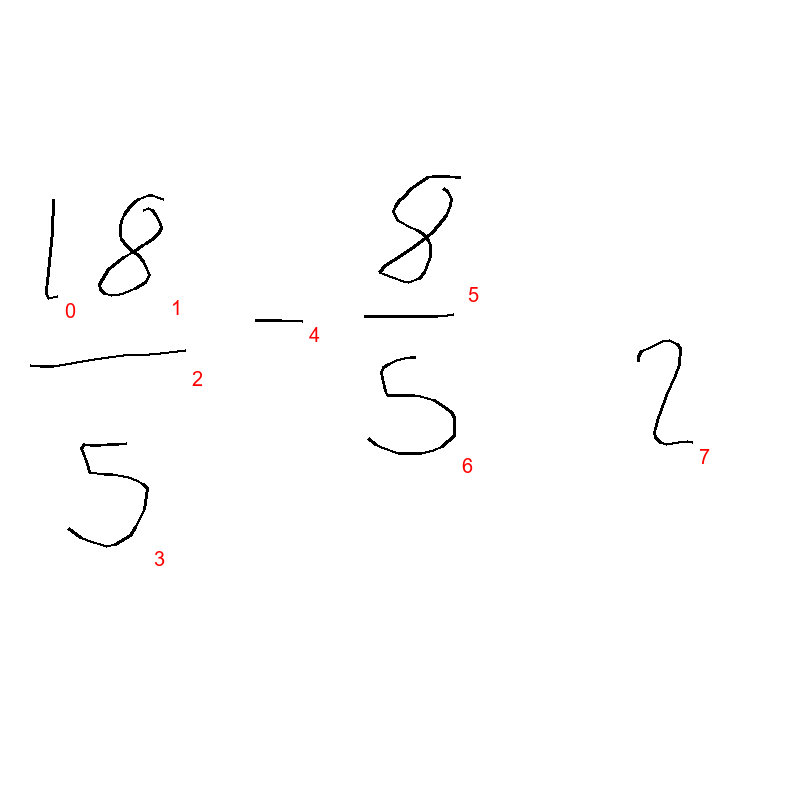 18/5 - 8/5 2
0 1 2 3 4 5 6 7